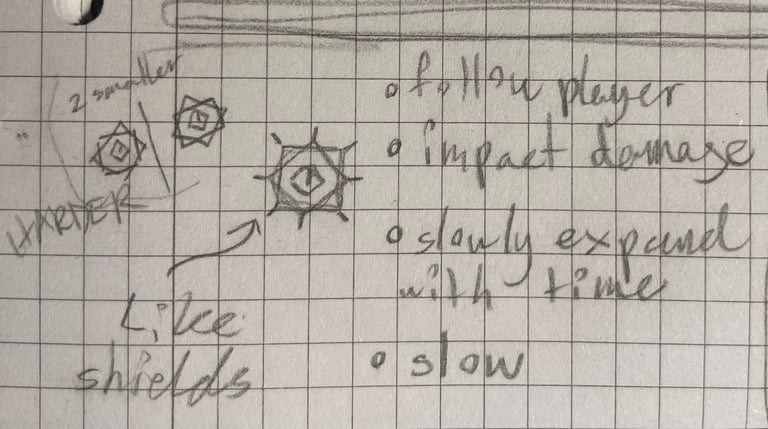 2 smaller
HARDER
Like
shields
follow player
impact damage
slowly expand
with time
slow